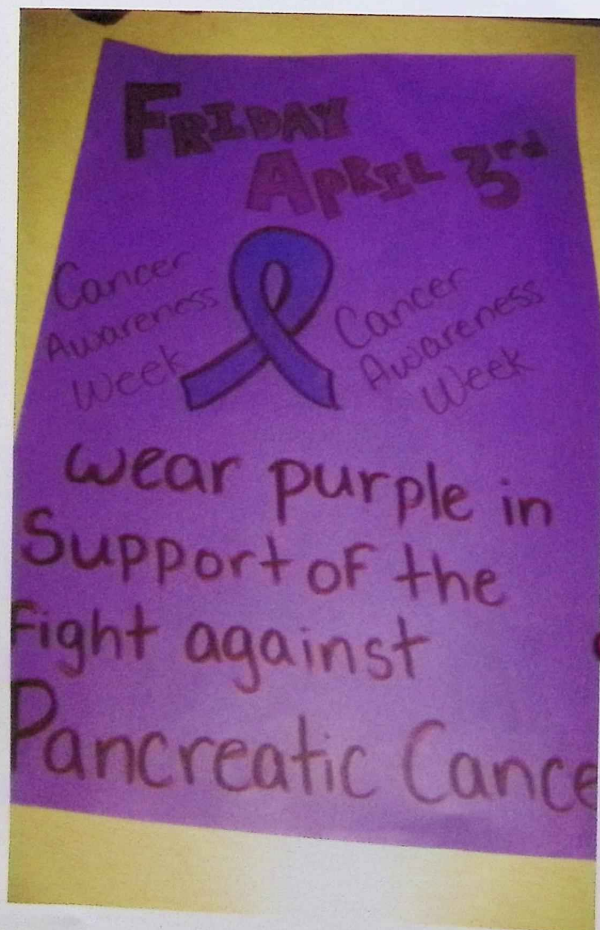 FRIDAY
APRIL 3rd
Cancer
Awareness
Week
Cancer
Awareness
Week
wear purple in
Support of the
Fight against
Pancreatic Cance